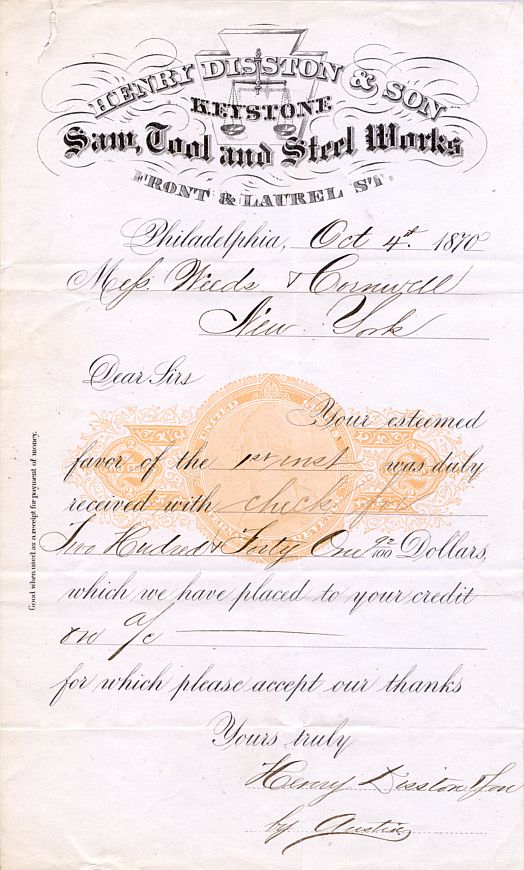 HENRY DISSTON & SON
KEYSTONE
Saw, Tool and Steel Works
FRONT & LAUREL ST.
Philadelphia, Oct 4th. 1870
Mess. Weeds & Cornwell
New York
Dear Sirs
Your esteemed
favor of the 1st inst was duly
received with check for
Two Hudred & Forty One 92/100 Dollars,
which we have placed to your credit
on a/c
for which please accept our thanks
Yours truly
Henry Disston & Son
by Austin
Good when used as a receipt for payment of money.
UNITED